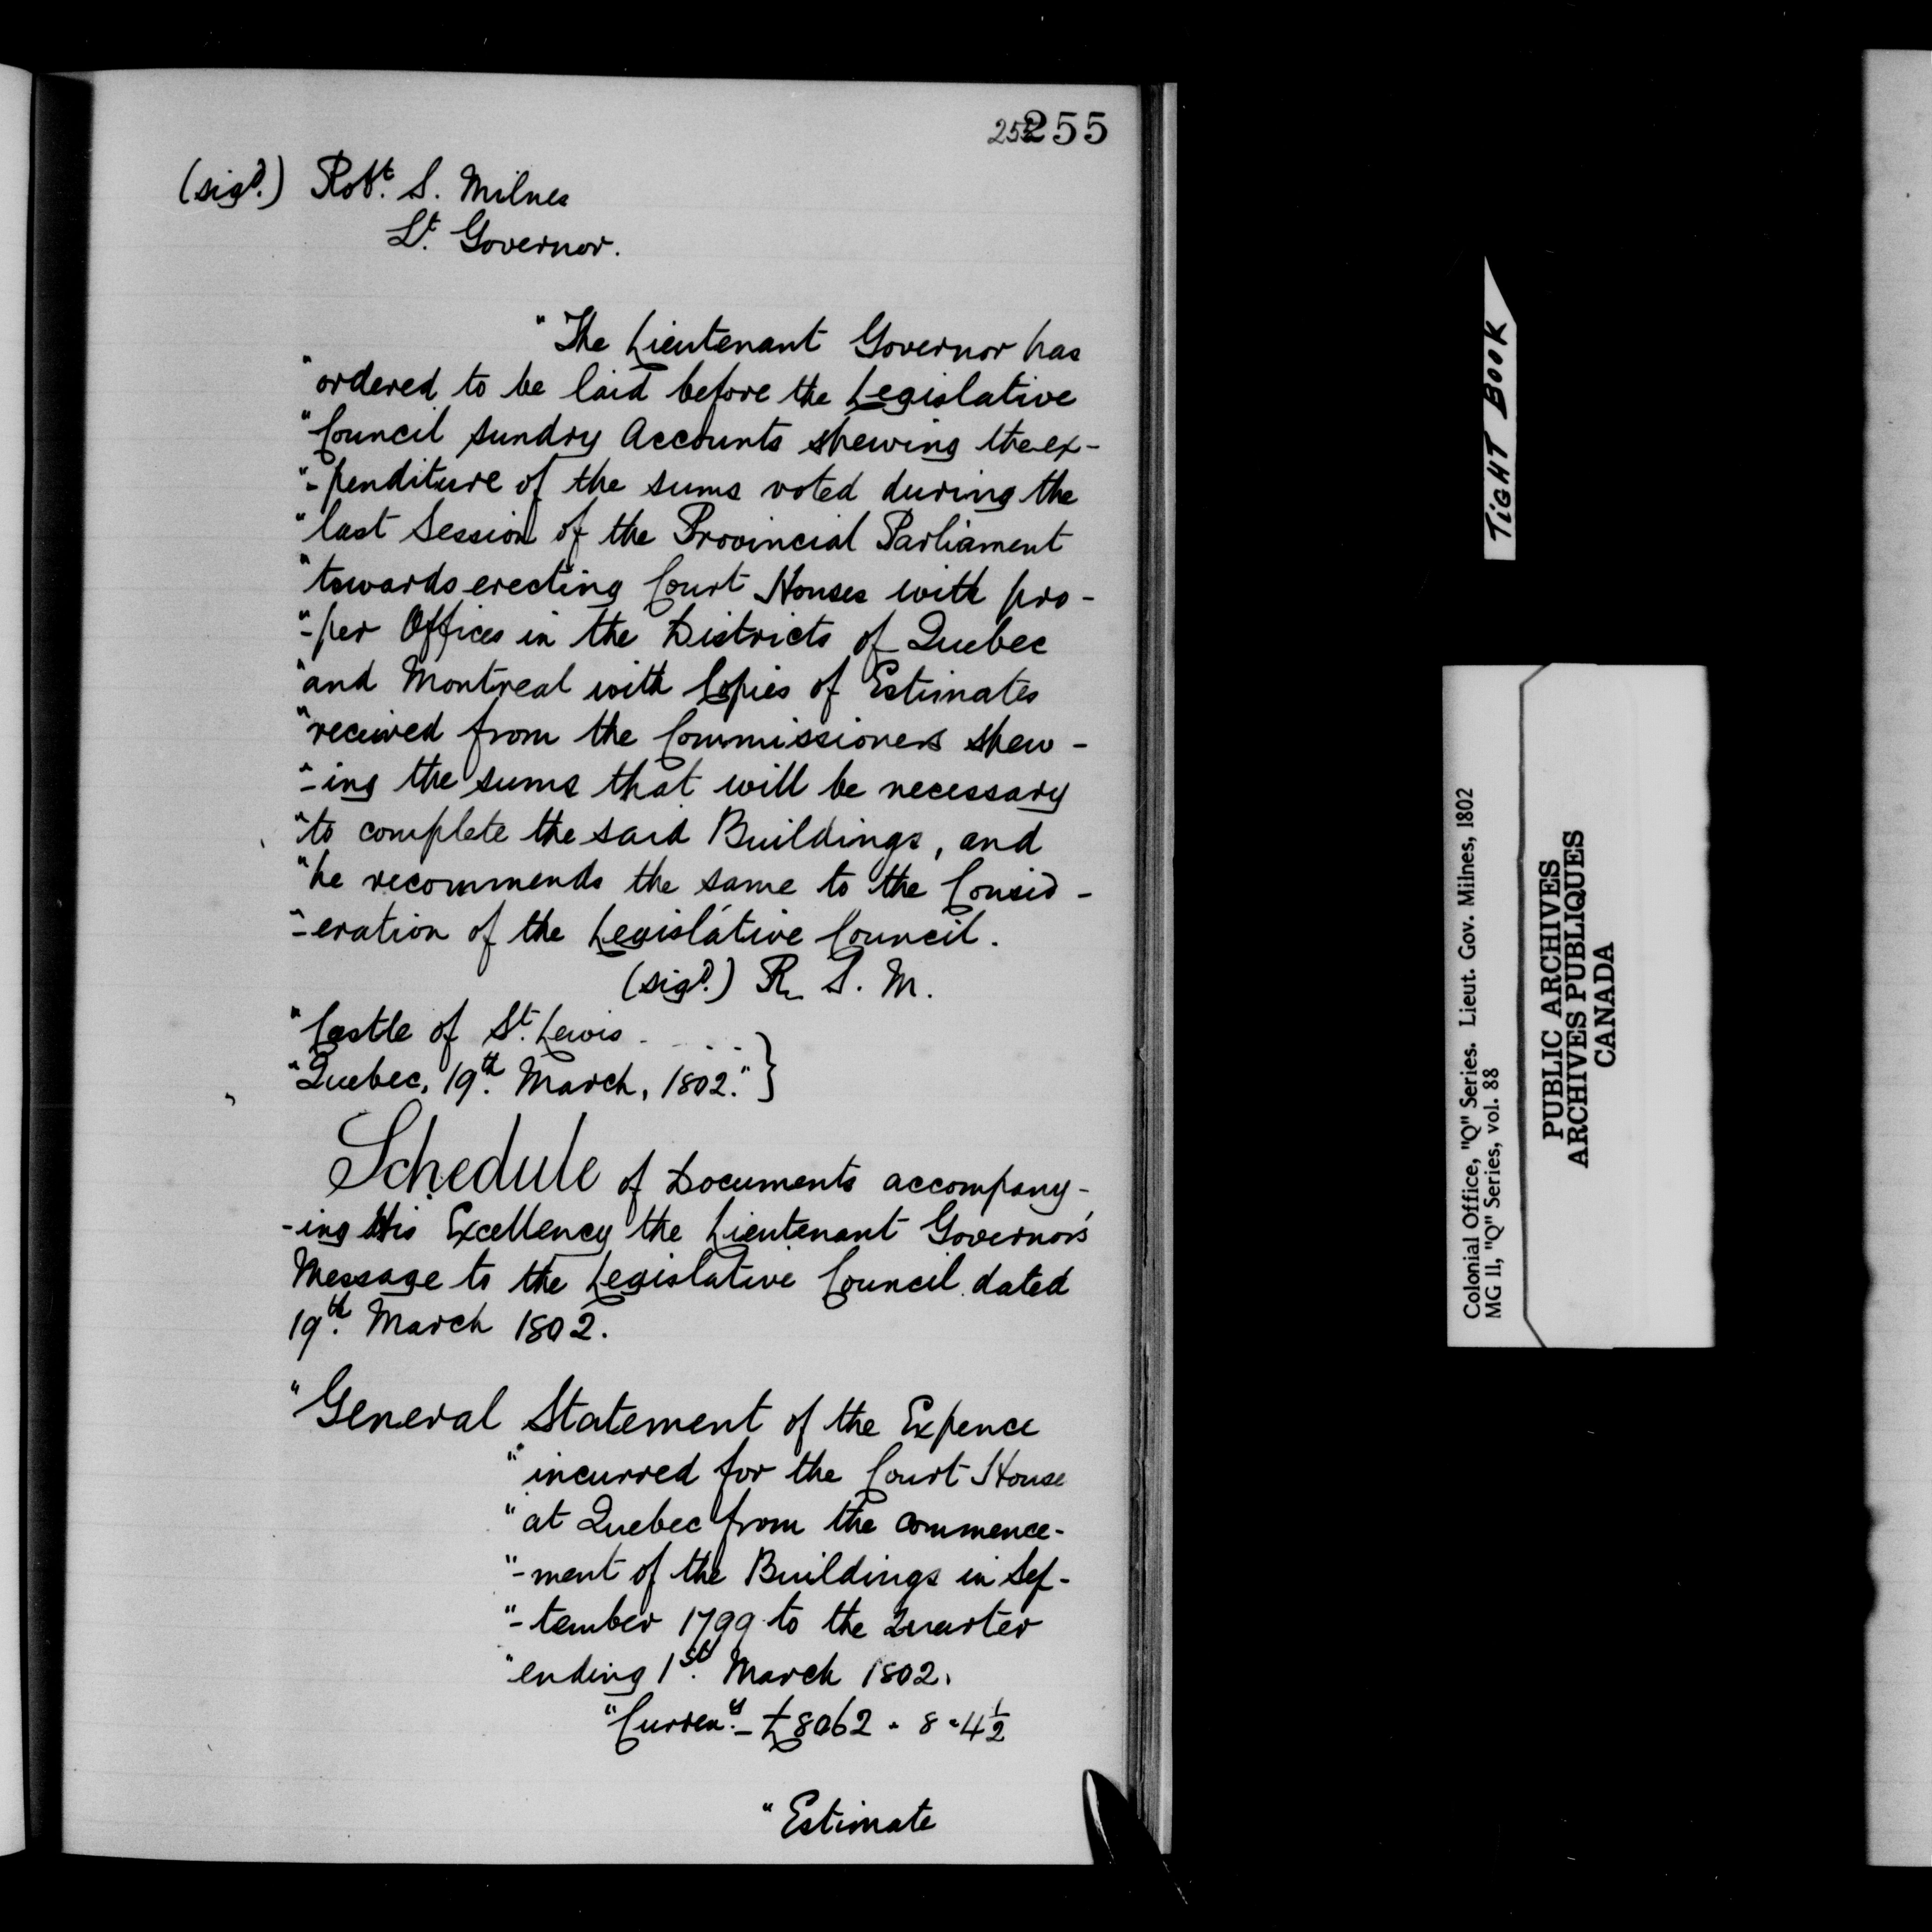 255
(sigd.) Robt. S. Milnes
Lt. Governor.
"The Lieutenant Governor has
"ordered to be laid before the Legislative
"Council sundry Accounts shewing the ex-
"-penditure of the sums voted during the
"last Session of the Provincial Parliament
"towards erecting Court Houses with pro-
"-per Offices in the Districts of Quebec
"and Montreal with Copies of Estimates
"received from the Commissioners shew-
"-ing the sums that will be necessary
"to complete the said Buildings, and
"he recommends the same to the Consid-
"-eration of the Legislative Council.
(sigd.) R. S. M.
"Castle of St. Lewis . . . .
"Quebec, 19th. March, 1802." }
Schedule of Documents accompany-
-ing His Excellency the Lieutenant Governor's
Message to the Legislative Council dated
19th. March 1802.
"General Statement of the Expence
"incurred for the Court House
"at Quebec from the commence-
"-ment of the Buildings in Sep-
"-tember 1799 to the Quarter
"ending 1st. March 1802.
"Curreny. - £8062 . 8 . 4½
"Estimate
TIGHT BOOK
Colonial Office, "Q" Series. Lieut. Gov. Milnes, 1802
MG 11, "Q" Series, vol. 88
PUBLIC ARCHIVES
ARCHIVES PUBLIQUES
CANADA